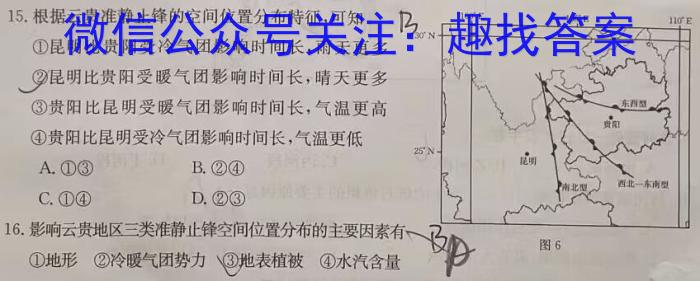 15.根据云贵准静止锋的空间位置分布特征,可知
B
微信公众号关注：趣找答案
①昆明比贵阳受冷气团影响时间长,雨天更多
②昆明比贵阳受暖气团影响时间长,晴天更多
③贵阳比昆明受暖气团影响时间长,气温更高
④贵阳比昆明受冷气团影响时间长,气温更低
A.①③ B.②④
C.①④ D.②③
16.影响云贵地区三类准静止锋空间位置分布的主要因素有
B
①地形 ②冷暖气团势力 ③地表植被 ④水汽含量
30°N
110°E
东西型
贵阳
25°N
昆明
南北型
西北—东南型
图6